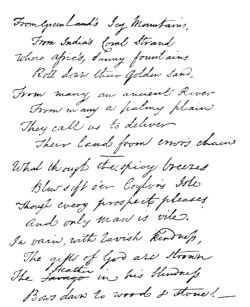 From Greenland's Icy Mountains,
From India's Coral Strand
Where Afric's, Sunny fountains
Roll down their golden Sand,
From many an ancient River
From many a palmy plain
They call us to deliver
Their Land from errors chain
What though the spicy breezes
Blow soft o'er Ceylon's Isle
Though every prospect pleases
And only man is vile.
In vain, with lavish kindness,
The gifts of God are strown
Heathen
The Savage in his blindness
Bows down to wood & Stone! —